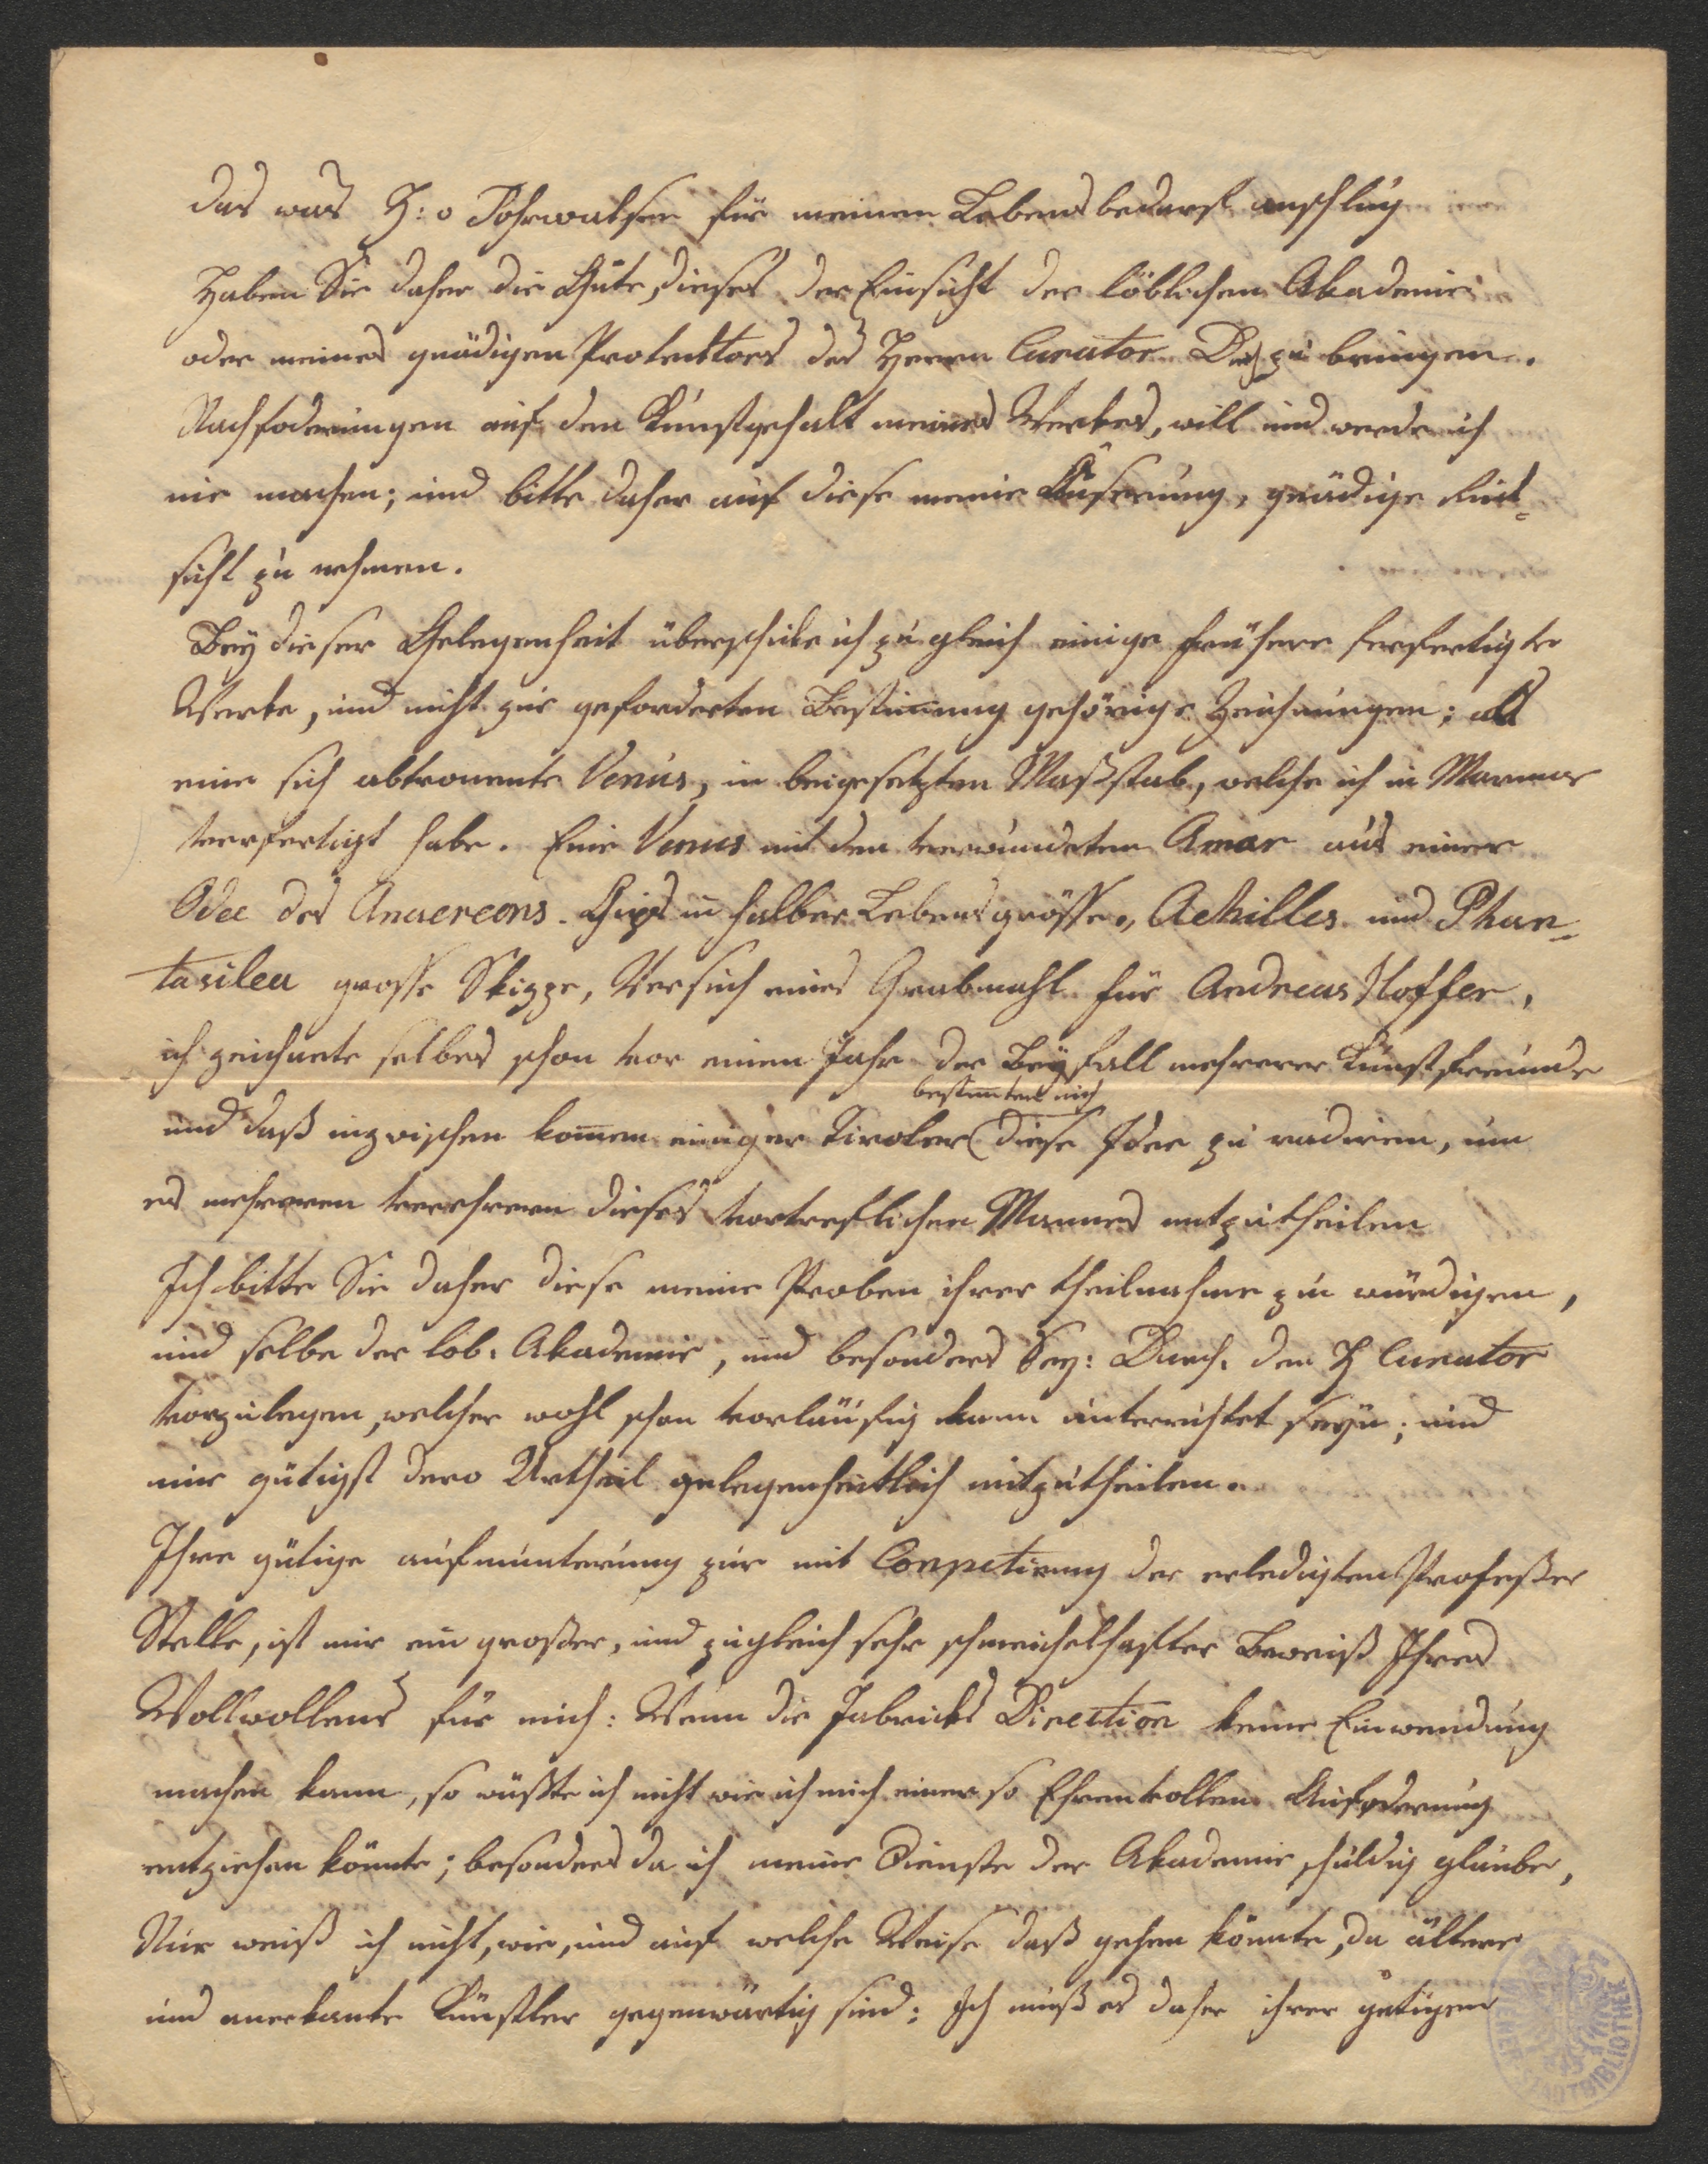 das was H: v Tohrwalsen für meinen Lebensbedarf anschlug
Haben Sie daher die Güte, dieses der Einsicht der löblichen Akademie
oder meines gnädigen Protecktors des Herrn Curator zu bringen.
Nachfoderungen auf den Kunstgehalt meines Werkes, will und werde ich
nie machen; und bitte daher auf diese meine Äuserung, gnädige Rück-
sicht zu nehmen.
Bey dieser Gelegenheit überschicke ich zugleich einige frühere ferfertigte
Werke, und nicht zur geforderten Bestimung gehörige Zeichnungen; als
eine sich abtronente Venus, in beigesetzten Maßstab, welche ich in Marmor
verfertigt habe. Eine Venus mit den verwundeten Amor aus einer
Odee des Anacreons. Gips in halber Lebensgrösse, Achilles und Phan-
tasilea grosse Skizze, Versuch eines Grabmahl für Andreas Hoffer,
ich zeichnete selbes schon vor einen Jahr der Beyfall mehrerer Kunstfreunde
bestimten mich
und daß inzwischen komen einiger Tiroler diese Idee zu radiren, um
es mehreren verehrern dieses vortreflichen Mannes mitzutheilen
Ich bitte Sie daher diese meine Proben ihrer theilnahme zu würdigen,
und selbe der löb. Akademie, und besonders Sey: Durch. den H Curator
vorzulegen, welcher wohl schon vorläufig kann unterrichtet seyn; und
mir gütigst dero Urtheil gelegenheitlich mitzutheilen.
Ihre gütige aufmunterung zur mit Conpetirung der erledigten Profeßer
Stelle, ist mir ein großer, und zugleich sehr schmeichelhafter Beweiß Ihres
Wollwollens für mich: Wenn die Fabricks Direction keine Einwendung
machen kann, so wüßte ich nicht wie ich mich einer so Ehrenvollen Aufoderung
entziehen könnte; besonders da ich meine Dienste der Akademie schuldig glaube,
Nur weiß ich nicht, wie, und auf welche Weise daß gehen könnte, da ältere
und anerkante Künstler gegenwärtig sind: Ich muß es daher ihrer gütigen
STADTBIBLIOTHEK